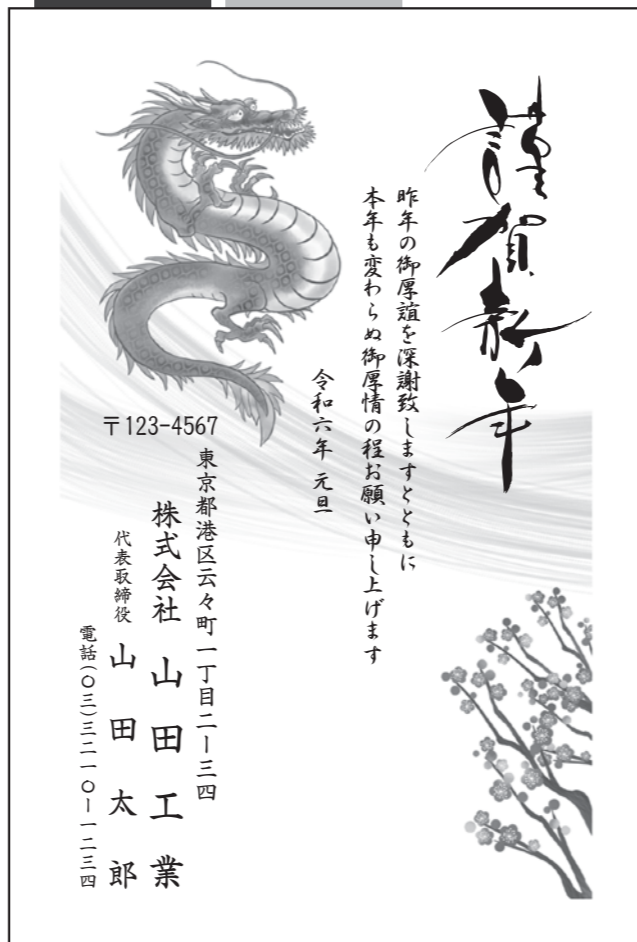 謹賀新年
昨年の御厚誼を深謝致しますとともに
本年も変わらぬ御厚情の程お願い申し上げます
令和六年 元旦
〒123-4567
東京都港区云々町一丁目二ー三四
株式会社 山田工業
代表取締役 山田太郎
電話(〇三)三二一〇ー一二三四